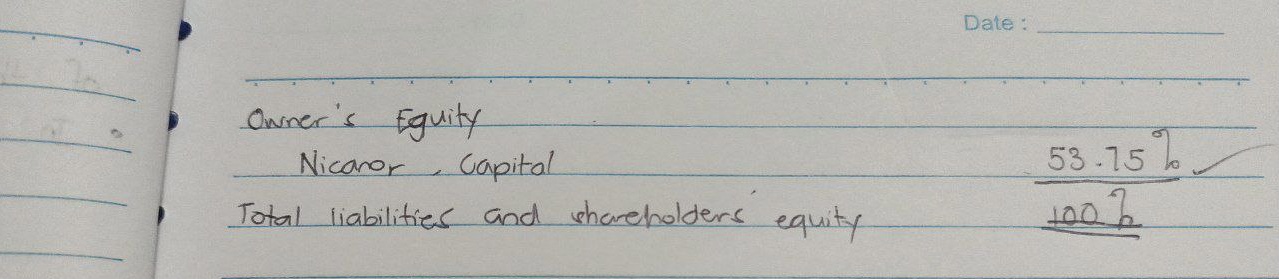 Date :
Owner's Equity
Nicanor, Capital 53.75%
Total liabilities and shareholders' equity 100%